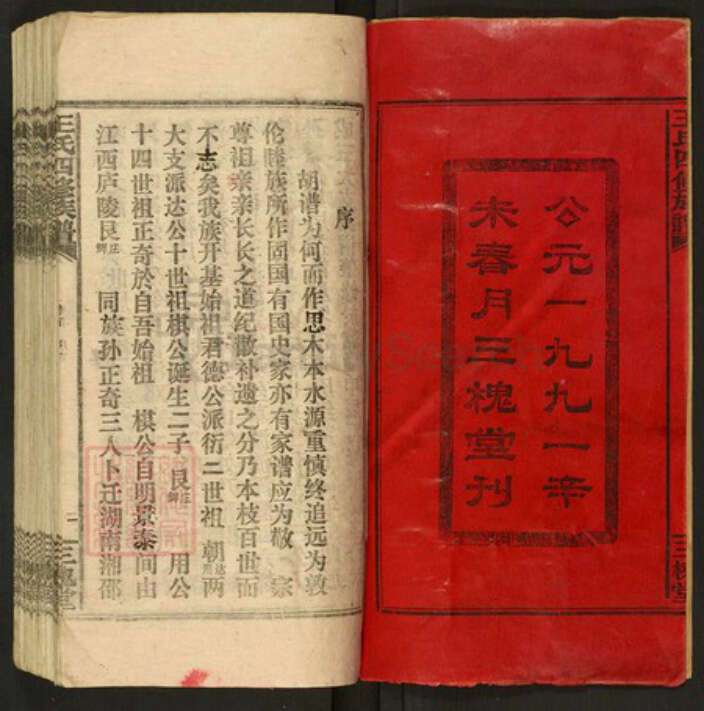 王氏四修族譜
三槐堂
公元一九九一辛
未春月三槐堂刊
序
胡谱为何而作思木本水源重慎终追远为敦
伦睦族所作固国有国史家亦有家谱应为敬 宗
尊祖亲亲长长之道纪散补遗之分乃本枝百世而
不志矣我族开基始祖君德公派衍二世祖 朝 两
大支派达公十世祖棋公诞生二子 良 用公
十四世祖正奇於自吾始祖 棋公自明景泰间由
江西庐陵良 同族孙正奇三人卜迁湖南湘邵
王氏四修族譜
一
三槐堂